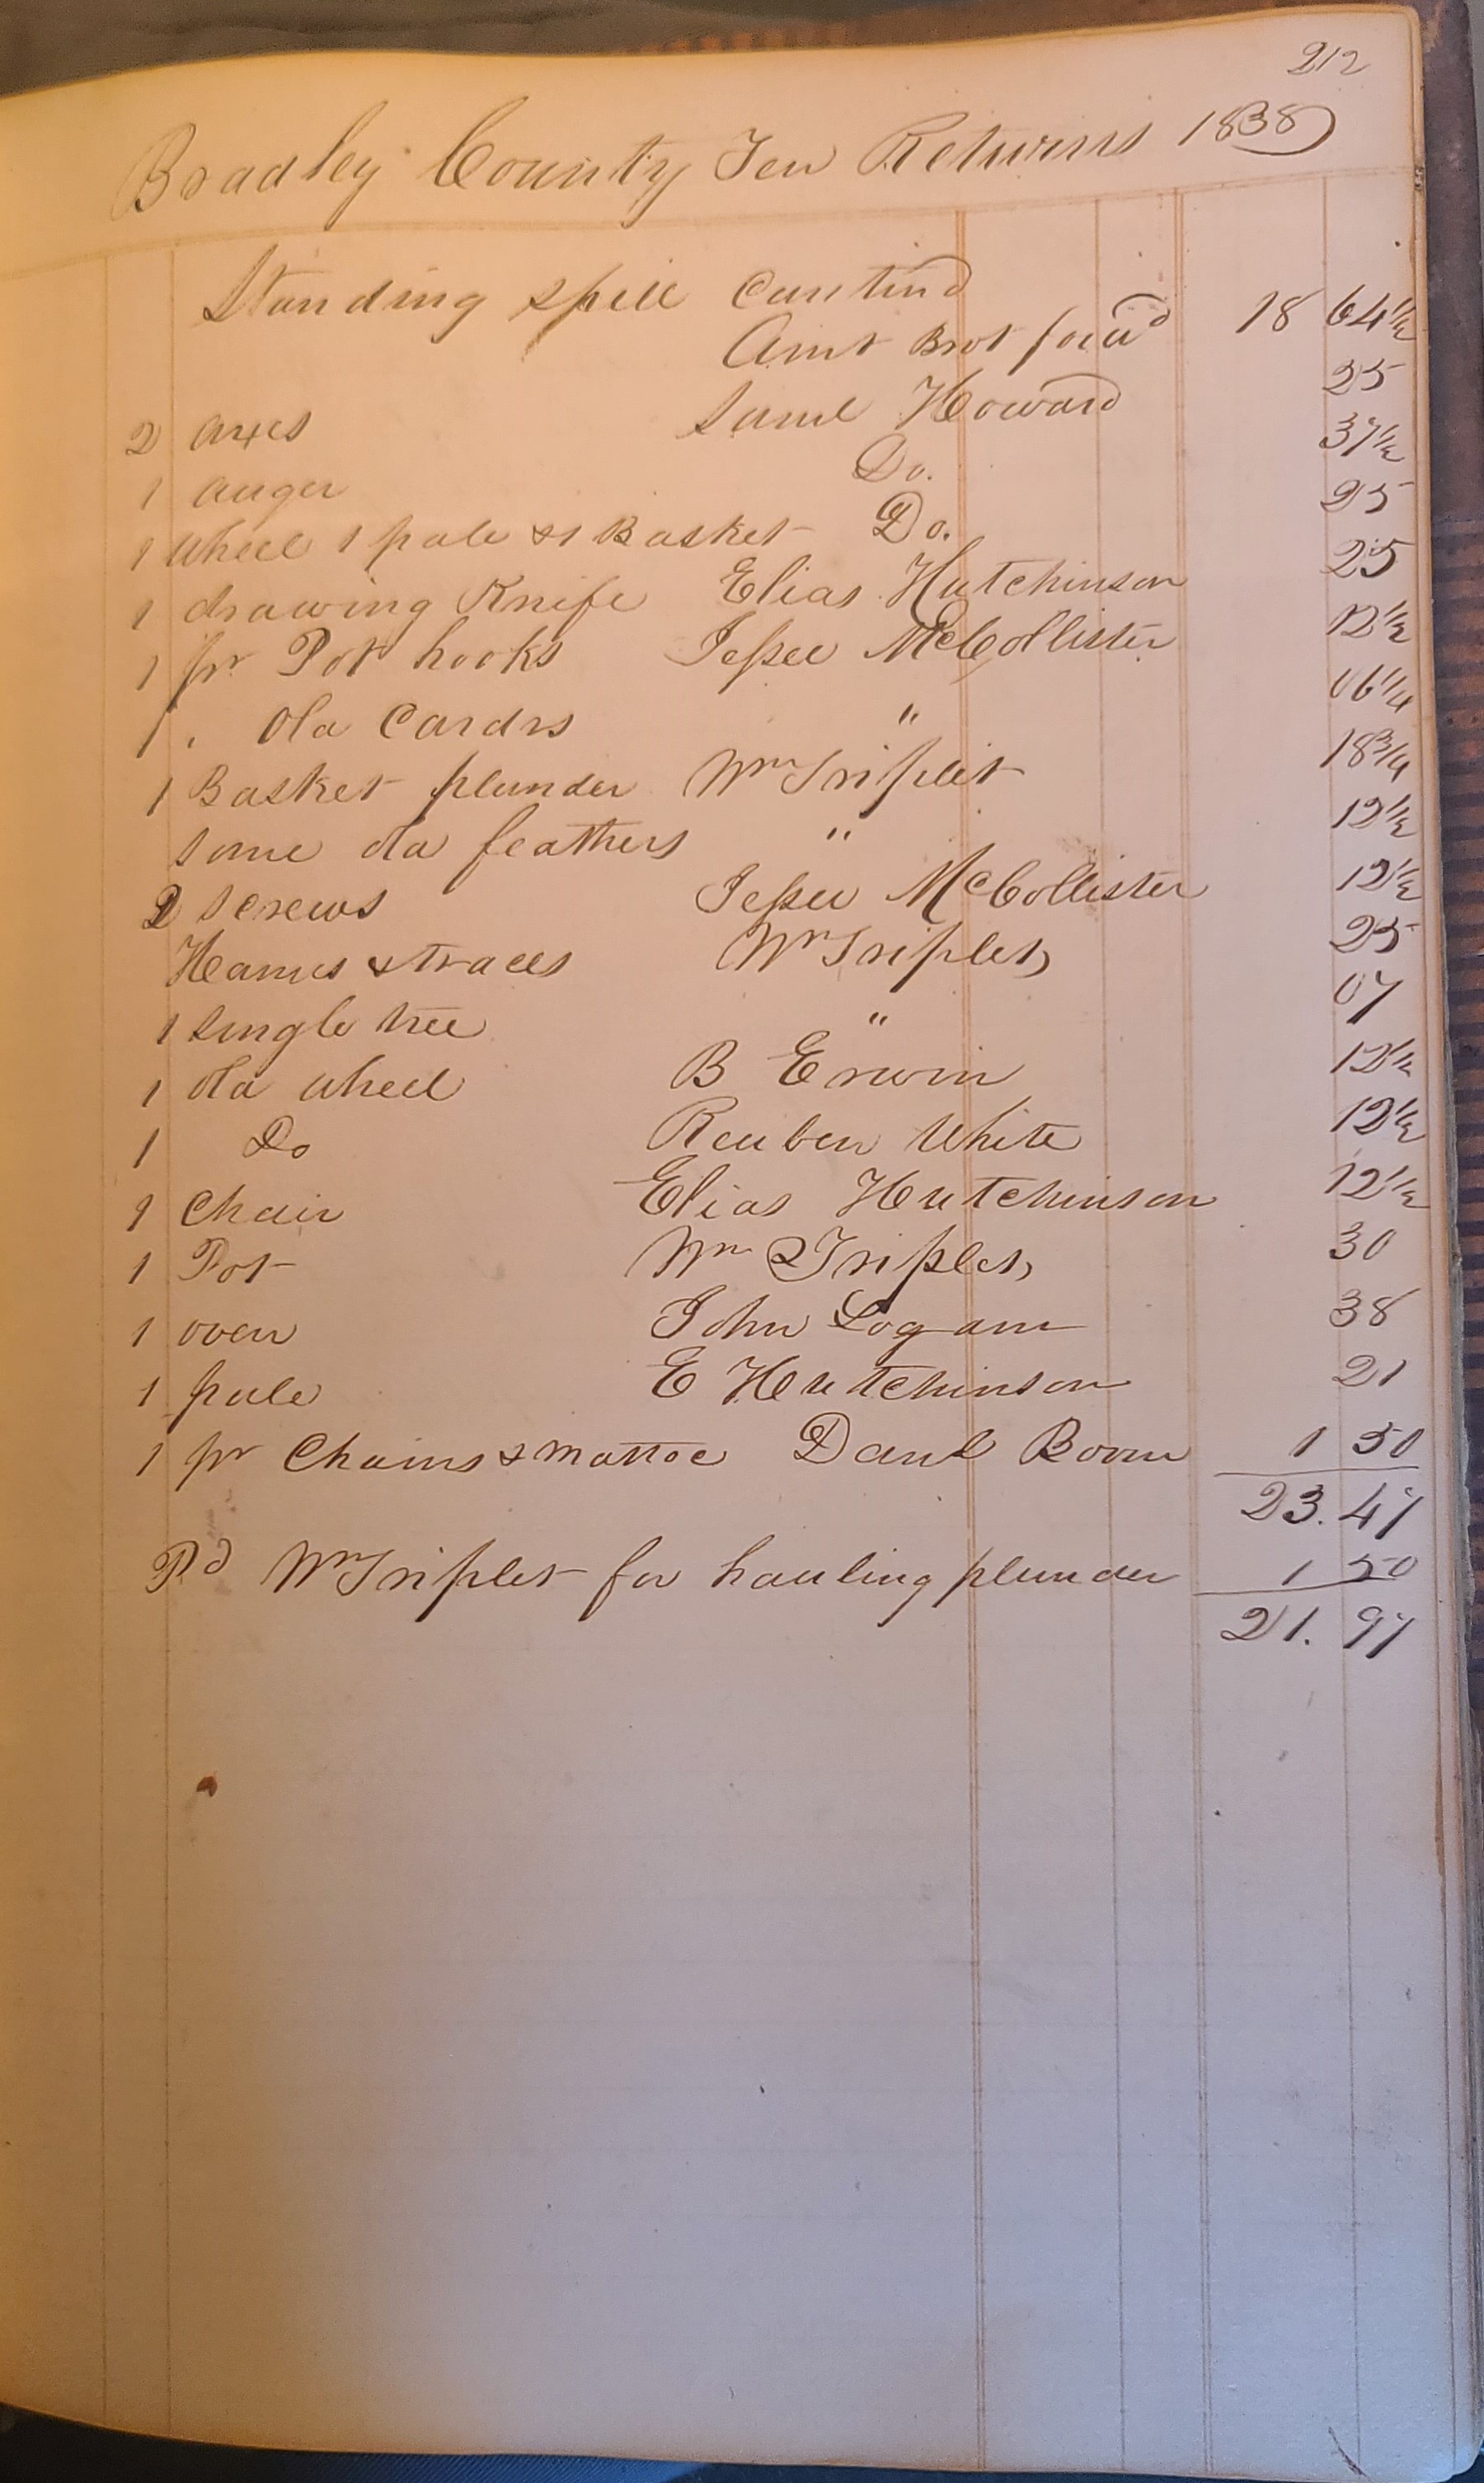 212
Bradley County Ten Returns 1838
Standing spill Contind
Amt Brot forwd 18 64 1/2
2 axes Saml Howard 25
1 auger Do. 37 1/2
1 wheel 1 pale & 1 Basket Do. 25
1 drawing Knife Elias Hutchinson 25
1 pr Pot hooks Jessee McCollister 12 1/2
1 " Old Cards " 06 1/4
1 Basket plunder Wm Triplet 18 3/4
some old feathers " 12 1/2
2 screws Jessee McCollister 12 1/2
Hames & traces Wm Triplet 25
1 single tree " 07
1 old wheel B Erwin 12 1/2
1 Do Reuben White 12 1/2
1 Chair Elias Hutchinson 12 1/2
1 Pot Wm Triplet 30
1 oven John Logan 38
1 pale E Hutchinson 21
1 pr Chains & mattoc Danl Boon 1 50
23.47
Pd Wm Triplet for hauling plunder 1 50
21.97